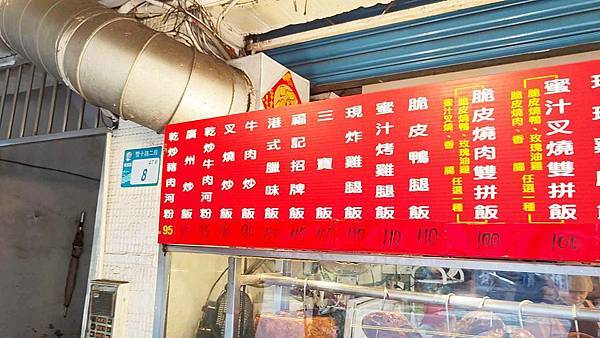 蜜汁叉燒雙拼飯
脆皮燒鴨、玫瑰油雞
脆皮燒肉、香 腸 任選一種
100
脆皮燒肉雙拼飯
脆皮燒鴨、玫瑰油雞
蜜汁叉燒、香 腸 任選一種
100
脆皮鴨腿飯
110
蜜汁烤雞腿飯
110
現炸雞腿飯
110
三寶飯
福記招牌飯
港式臘味飯
牛肉炒飯
90
叉燒炒飯
90
乾炒牛肉河粉
95
廣州炒飯
乾炒豬肉河粉
95
8